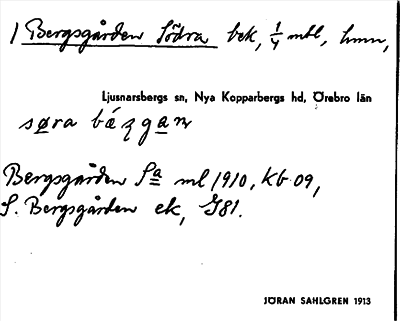 1 Bergsgården Södra bek, 1/4 mtl, hmn,
Ljusnarsbergs sn, Nya Kopparbergs hd, Örebro län
søra
Bergsgården Sa ml 1910, Kb 09,
S. Bergsgården ek, G81.
JÖRAN SAHLGREN 1913